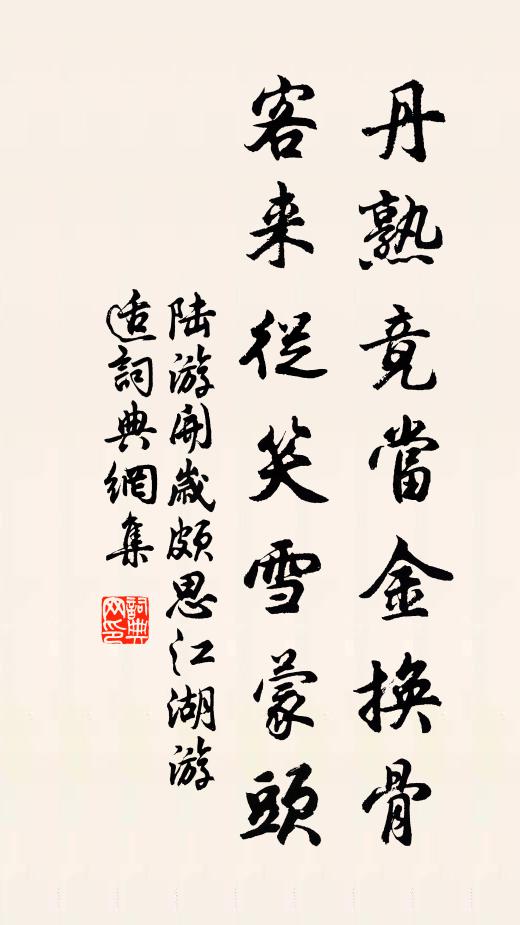 丹熟竟當金換骨
客来從笑雪蒙頭
陆游開歲頗思江湖游
适詞典網集
詞典网印